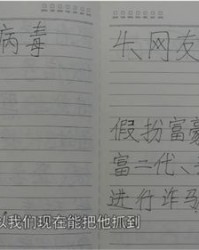 病毒
头、网友
假扮富豪
富二代、
进行诈骗
以我们现在能把他抓到